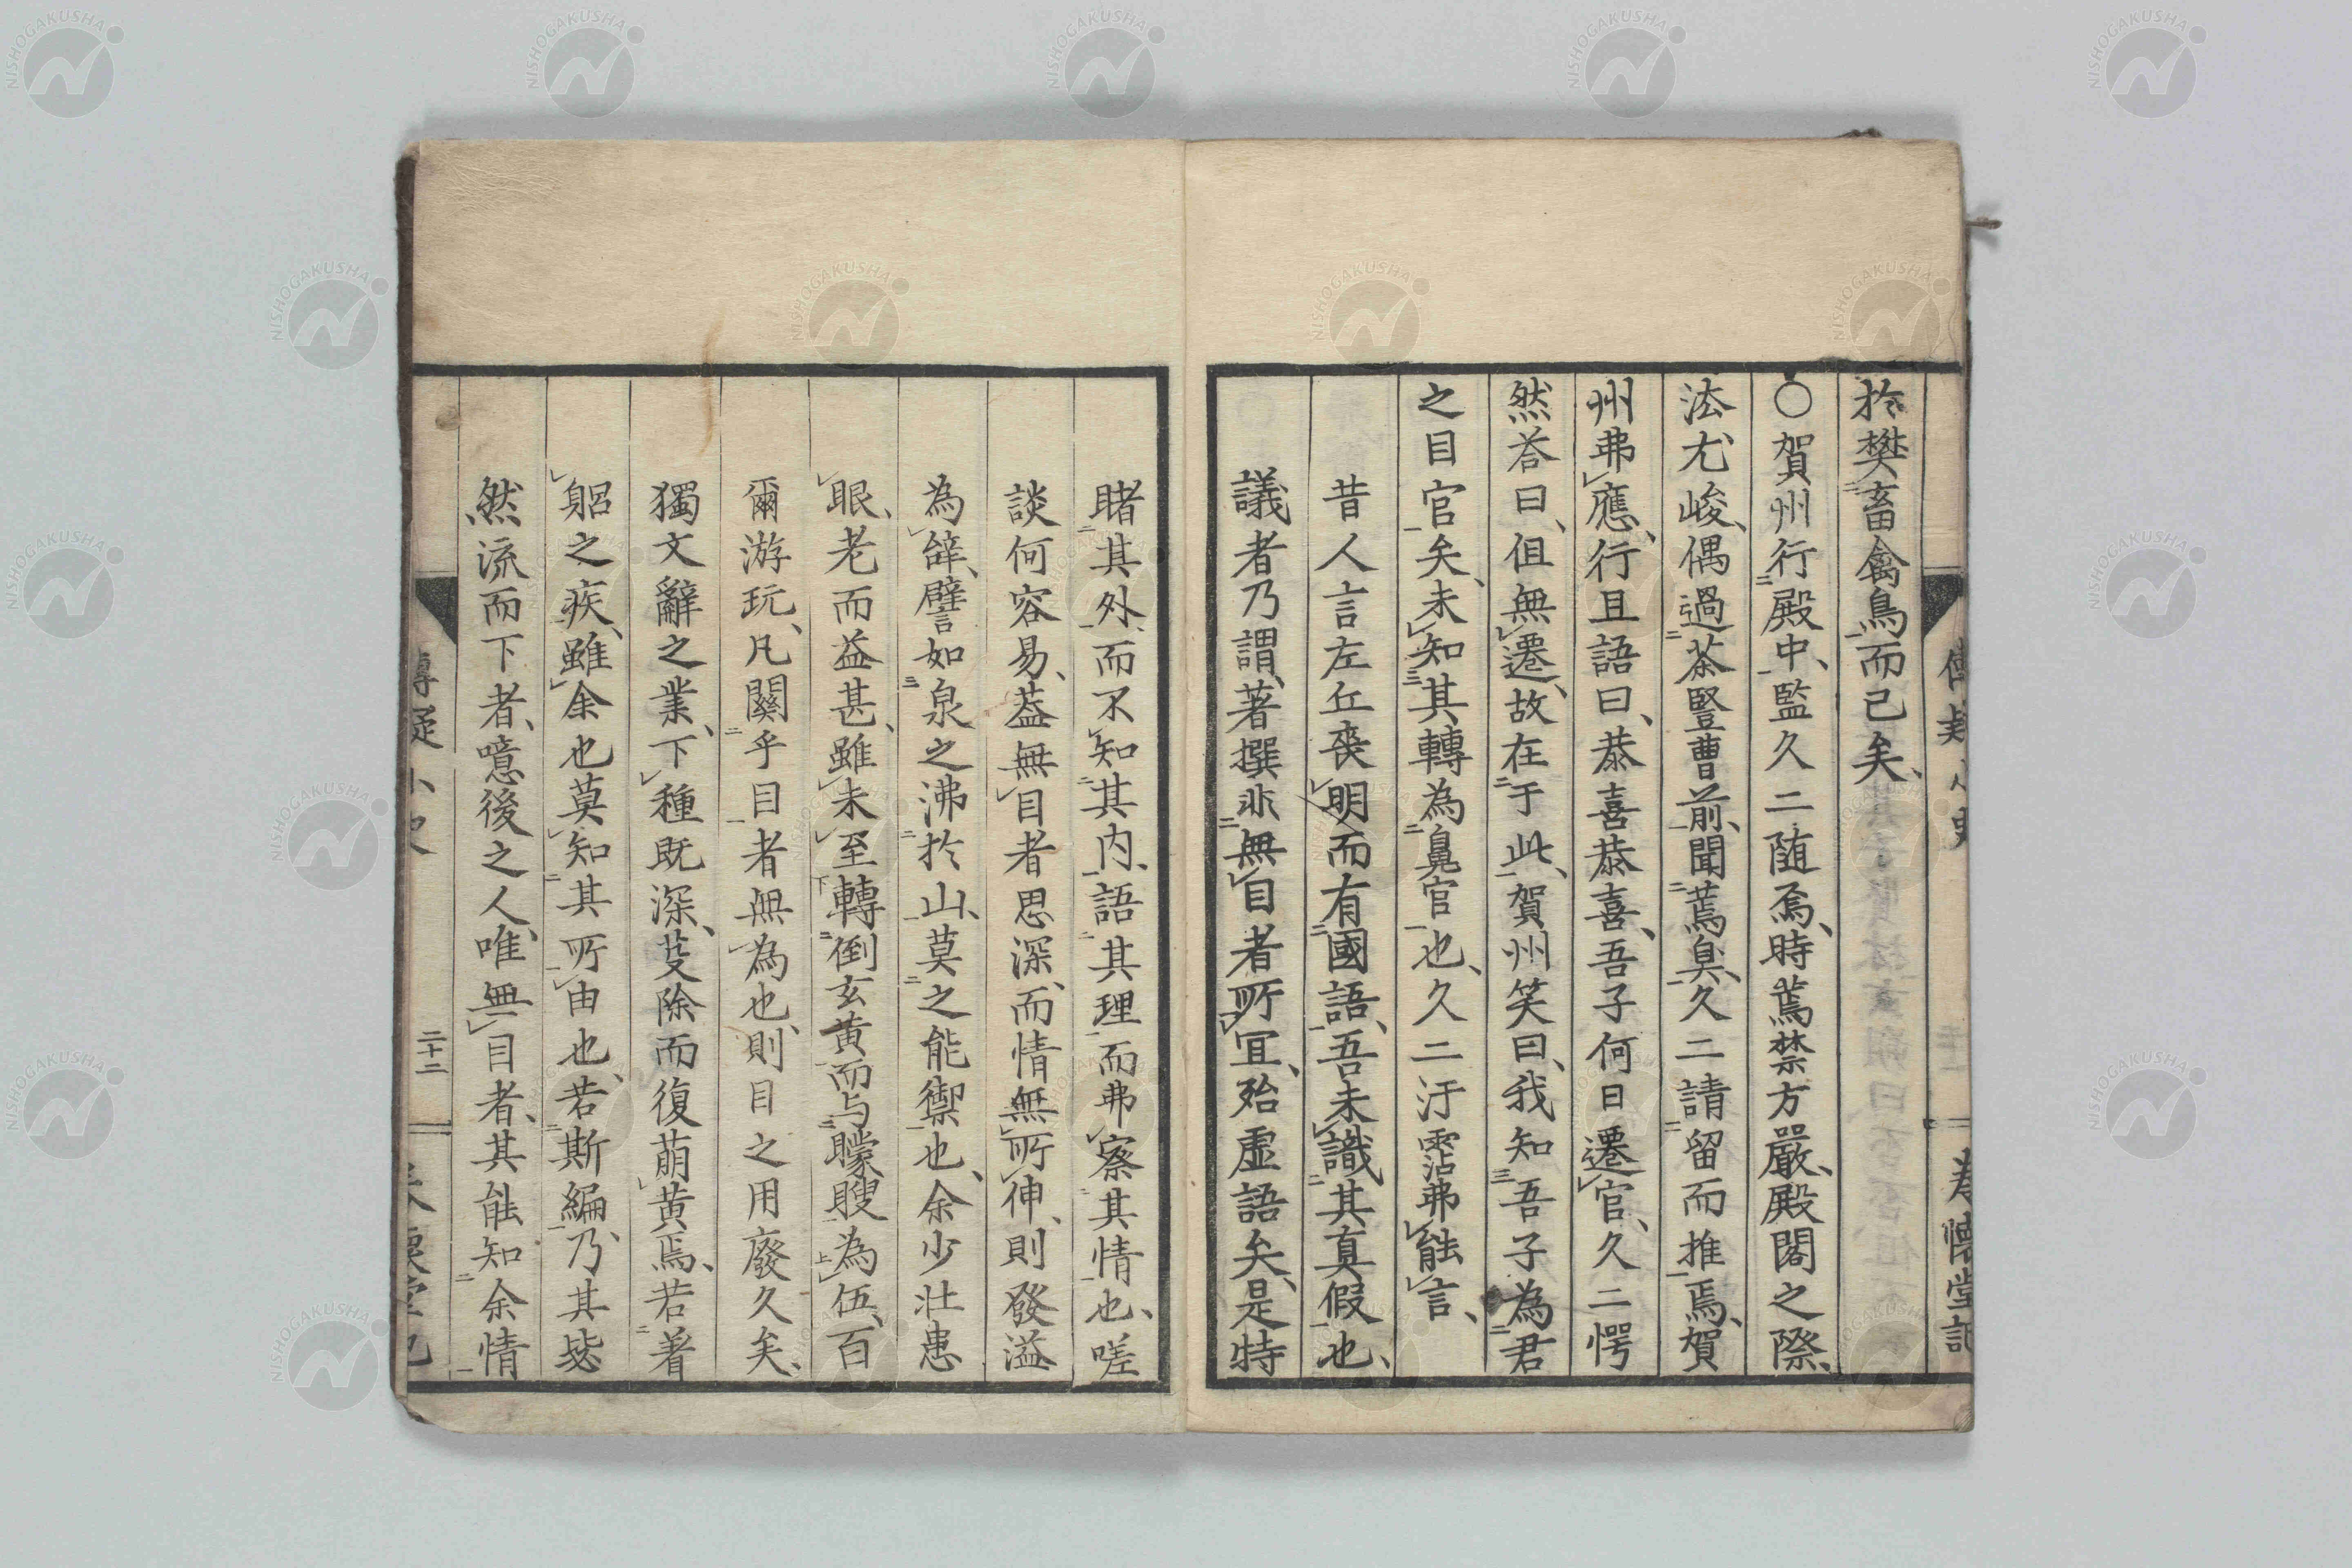 於樊畜禽鳥而已矣、
〇賀州行殿中、監久二随焉、時蔫禁方嚴、殿閣之際、
法尤峻、偶過茶豎曹前、聞蔫臭、久二請留而推焉、賀
州弗應、行且語曰、恭喜恭喜、吾子何日遷官、久二愕
然答曰、但無遷、故在于此、賀州笑曰、我知吾子為君
之目官矣、未知其轉為鼻官也、久二汗霑弗能言、
昔人言左丘喪明而有國語、吾未識其真假也、
議者乃謂、著撰非無目者所冝、殆虚語矣、是特
睹其外、而不知其内、語其理而弗察其情也、嗟
談何容易、葢無目者思深、而情無所伸、則發溢
為辞、譬如泉之沸於山、莫之能禦也、余少壮患
眼、老而益甚、雖未至轉倒玄黄而与矇瞍為伍、百
爾游玩、凡關乎目者無為也、則目之用廢久矣、
獨文辭之業、下種既深、芟除而復萠黄焉、若著
躳之疾、雖余也莫知其所由也、若斯編乃、其毖
然流而下者、噫後之人、唯無目者、其能知余情
二十二
NISHOGAKUSHA